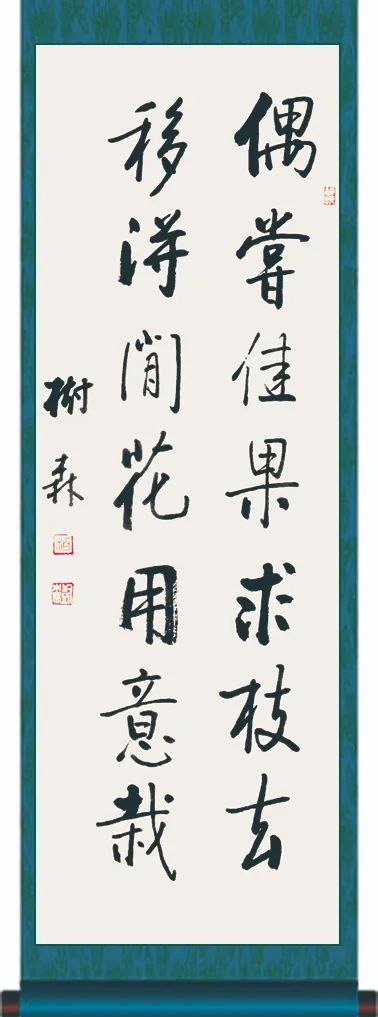 偶嘗佳果求枝去
移得閒花用意栽
樹森